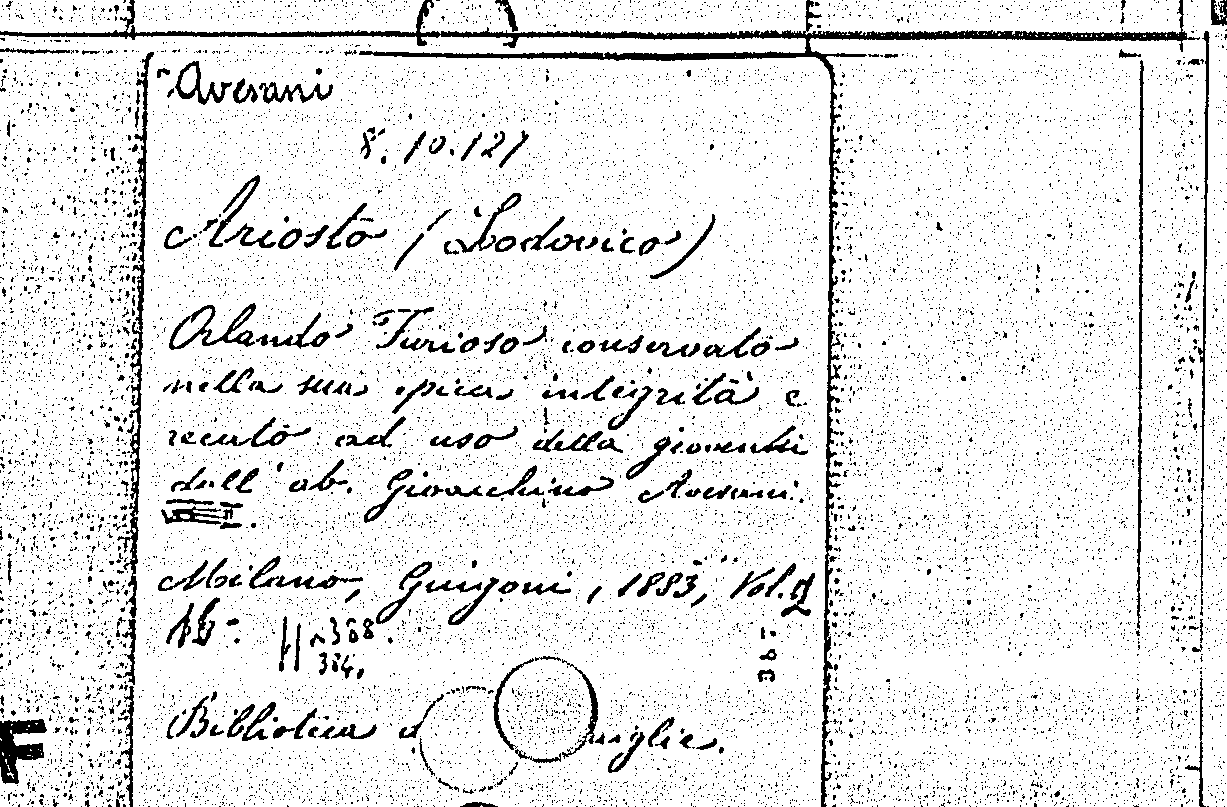 Avesani
8.10.127
Ariosto (Lodovico)
Orlando Furioso conservato
nella sua epica integrità e
recato ad uso della gioventù
dall' ab. Gioachino Avesani.
Milano, Guigoni, 1883, Vol. 2
16°. 368.
384.
367
Biblioteca d miglie.